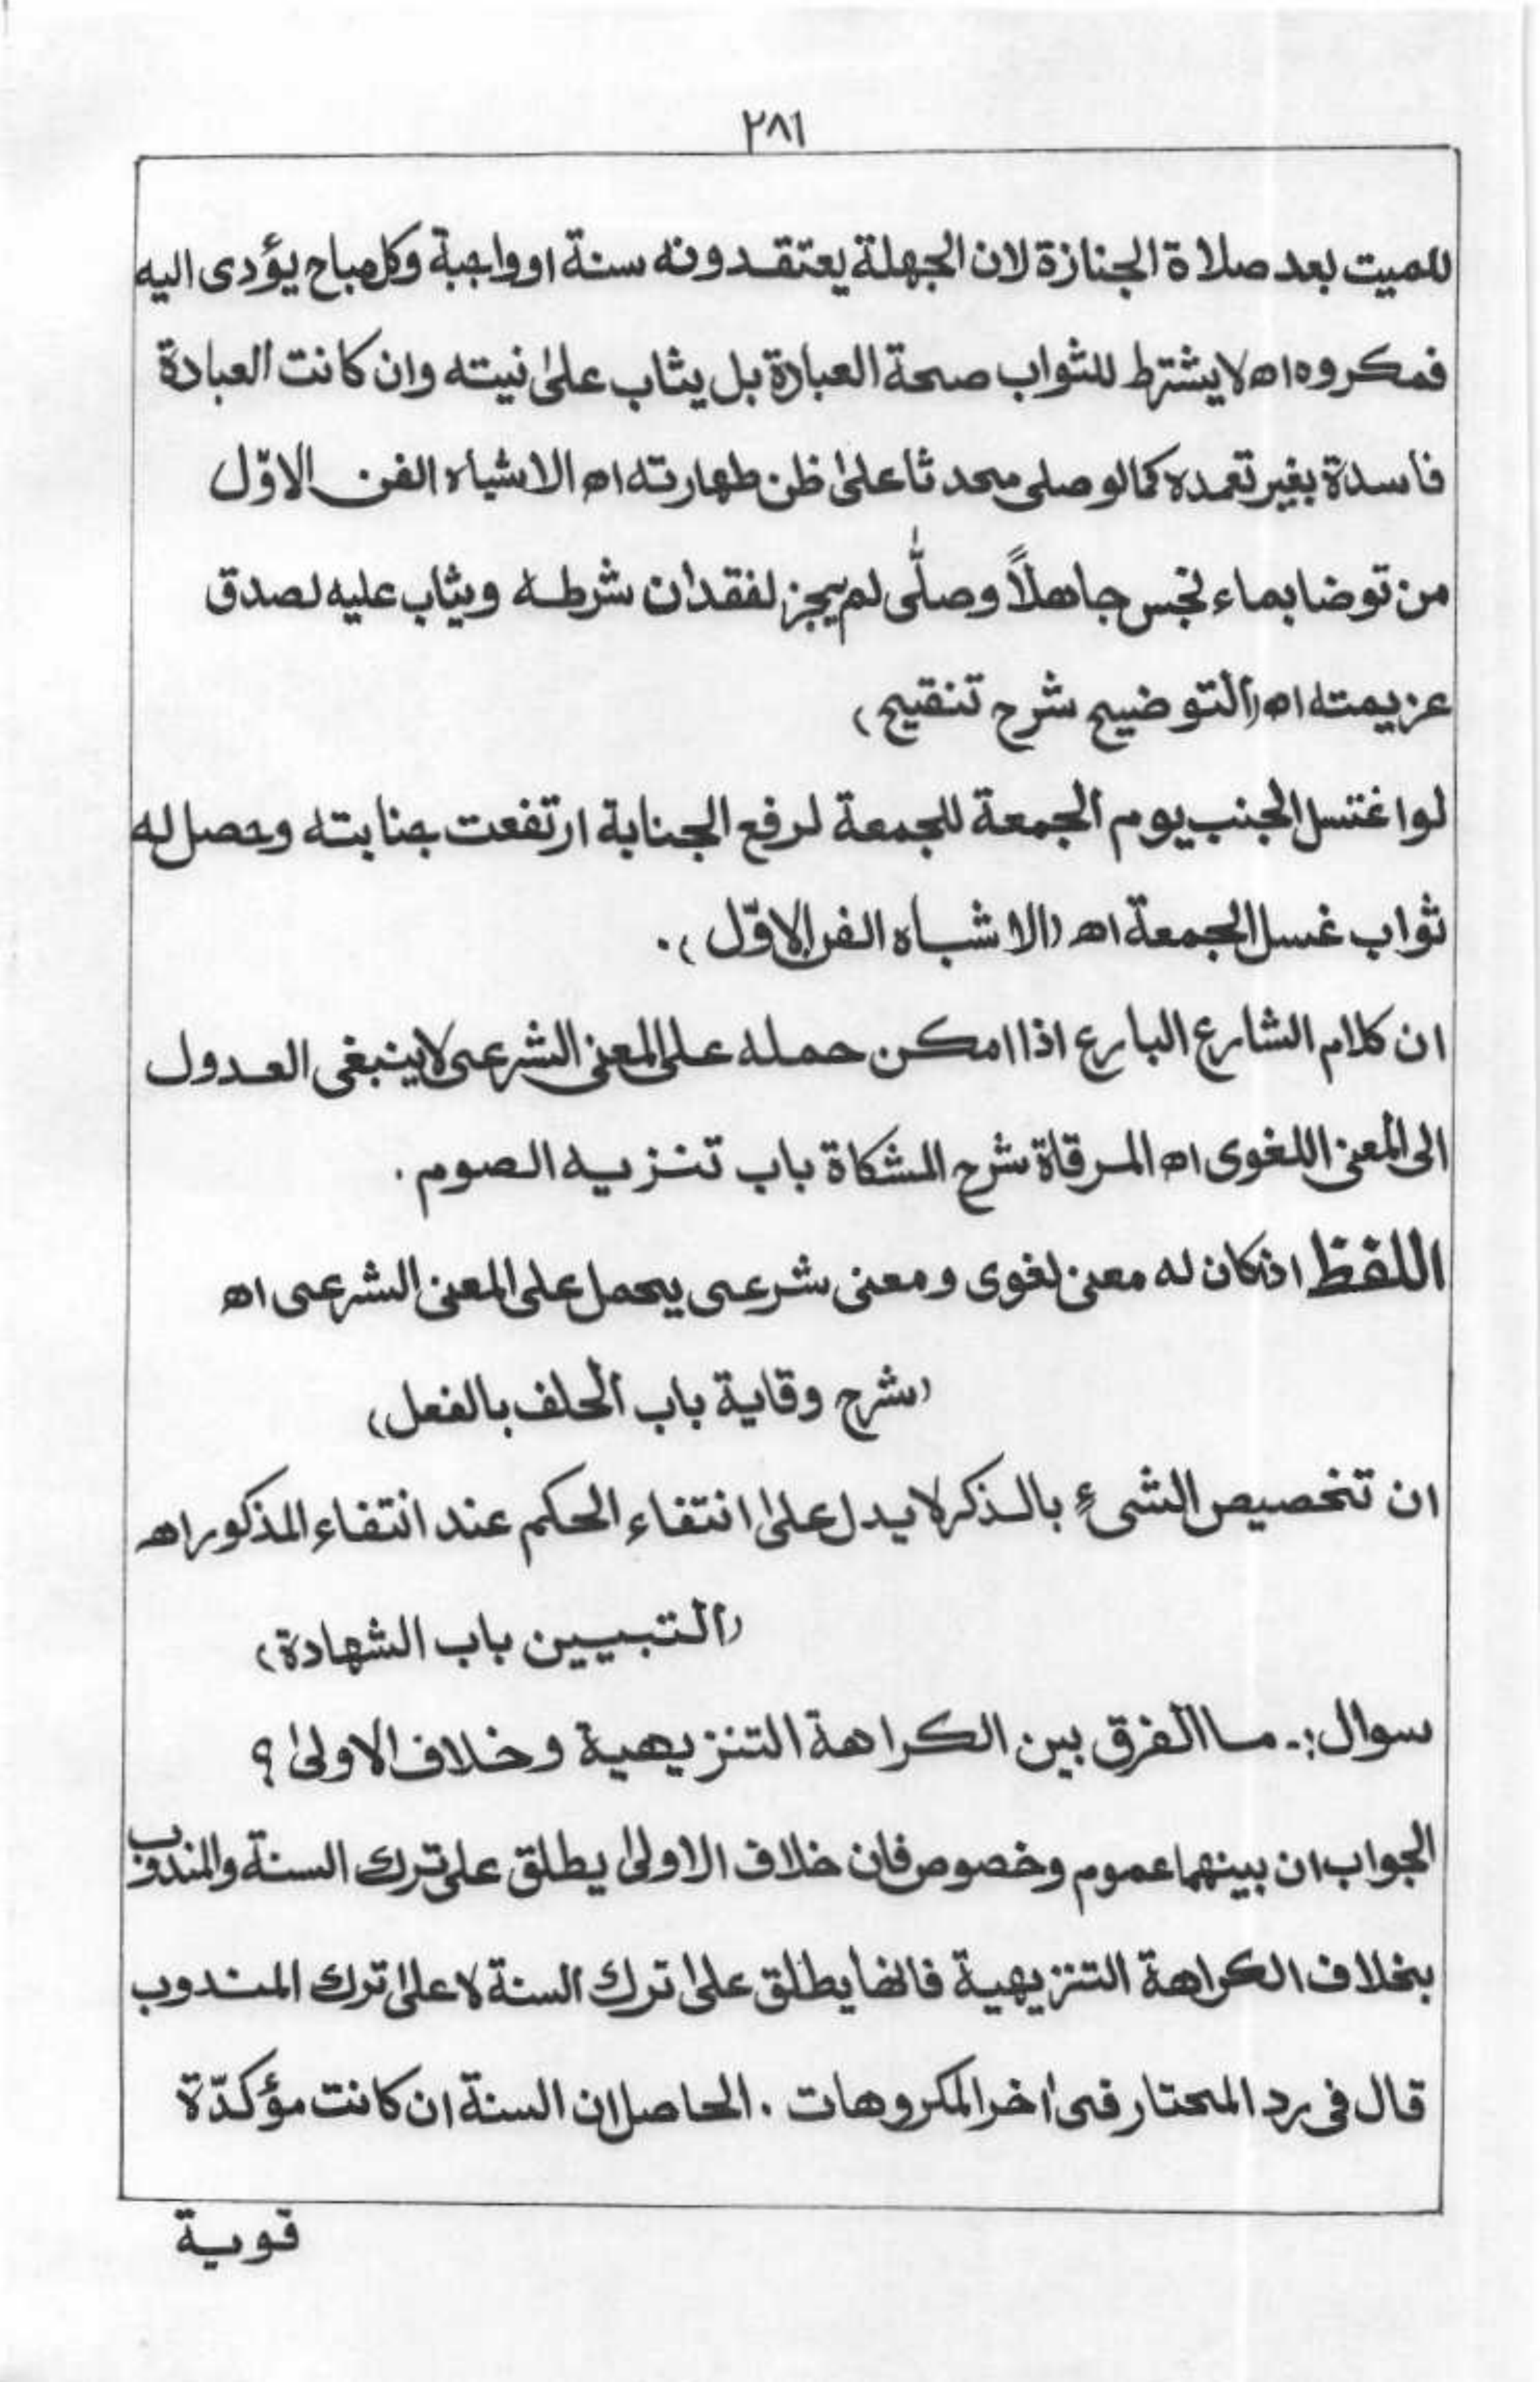 ٢٨١
للميت بعد صلاة الجنازة لان الجهلة يعتقدونه سنة او واجبة وكل مباح يؤدى اليه
فمكروه اه لا يشترط للثواب صحة العبادة بل يثاب علىٰ نيته وان كانت العبادة
فاسدة بغير تعمده كما لو صلى محدثا علىٰ ظن طهارته اه الاشباه الفن الاوّل
من توضا بماء نجس جاهلاً وصلّٰى لم يجز لفقدان شرطه ويثاب عليه لصدق
عزيمته اه (التوضيح شرح تنقيح)
لو اغتسل الجنب يوم الجمعة للجمعة لرفع الجنابة ارتفعت جنابته وحصل له
ثواب غسل الجمعة اه (الاشباه الفن الاوّل).
ان كلام الشارع البارع اذا امكن حمله على المعنى الشرعى لا ينبغى العدول
الى المعنى اللغوى اه المرقاة شرح المشكاة باب تنزيه الصوم.
اللفظ اذا كان له معنى لغوى ومعنى شرعى يحمل على المعنى الشرعى اه
(شرح وقاية باب الحلف بالفعل)
ان تخصيص الشىءِ بالذكر لا يدل علىٰ انتفاء الحكم عند انتفاء المذكور اه
(التبيين باب الشهادة)
سوال:۔ ما الفرق بين الكراهة التنزيهية وخلاف الاولىٰ؟
الجواب ان بينهما عموم وخصوص فان خلاف الاولىٰ يطلق على ترك السنة والمندوب
بخلاف الكراهة التنزيهية فانها يطلق علىٰ ترك السنة لا علىٰ ترك المندوب
قال فى رد المحتار فى اٰخر المكروهات. الحاصل ان السنة ان كانت مؤكدّة
قوية